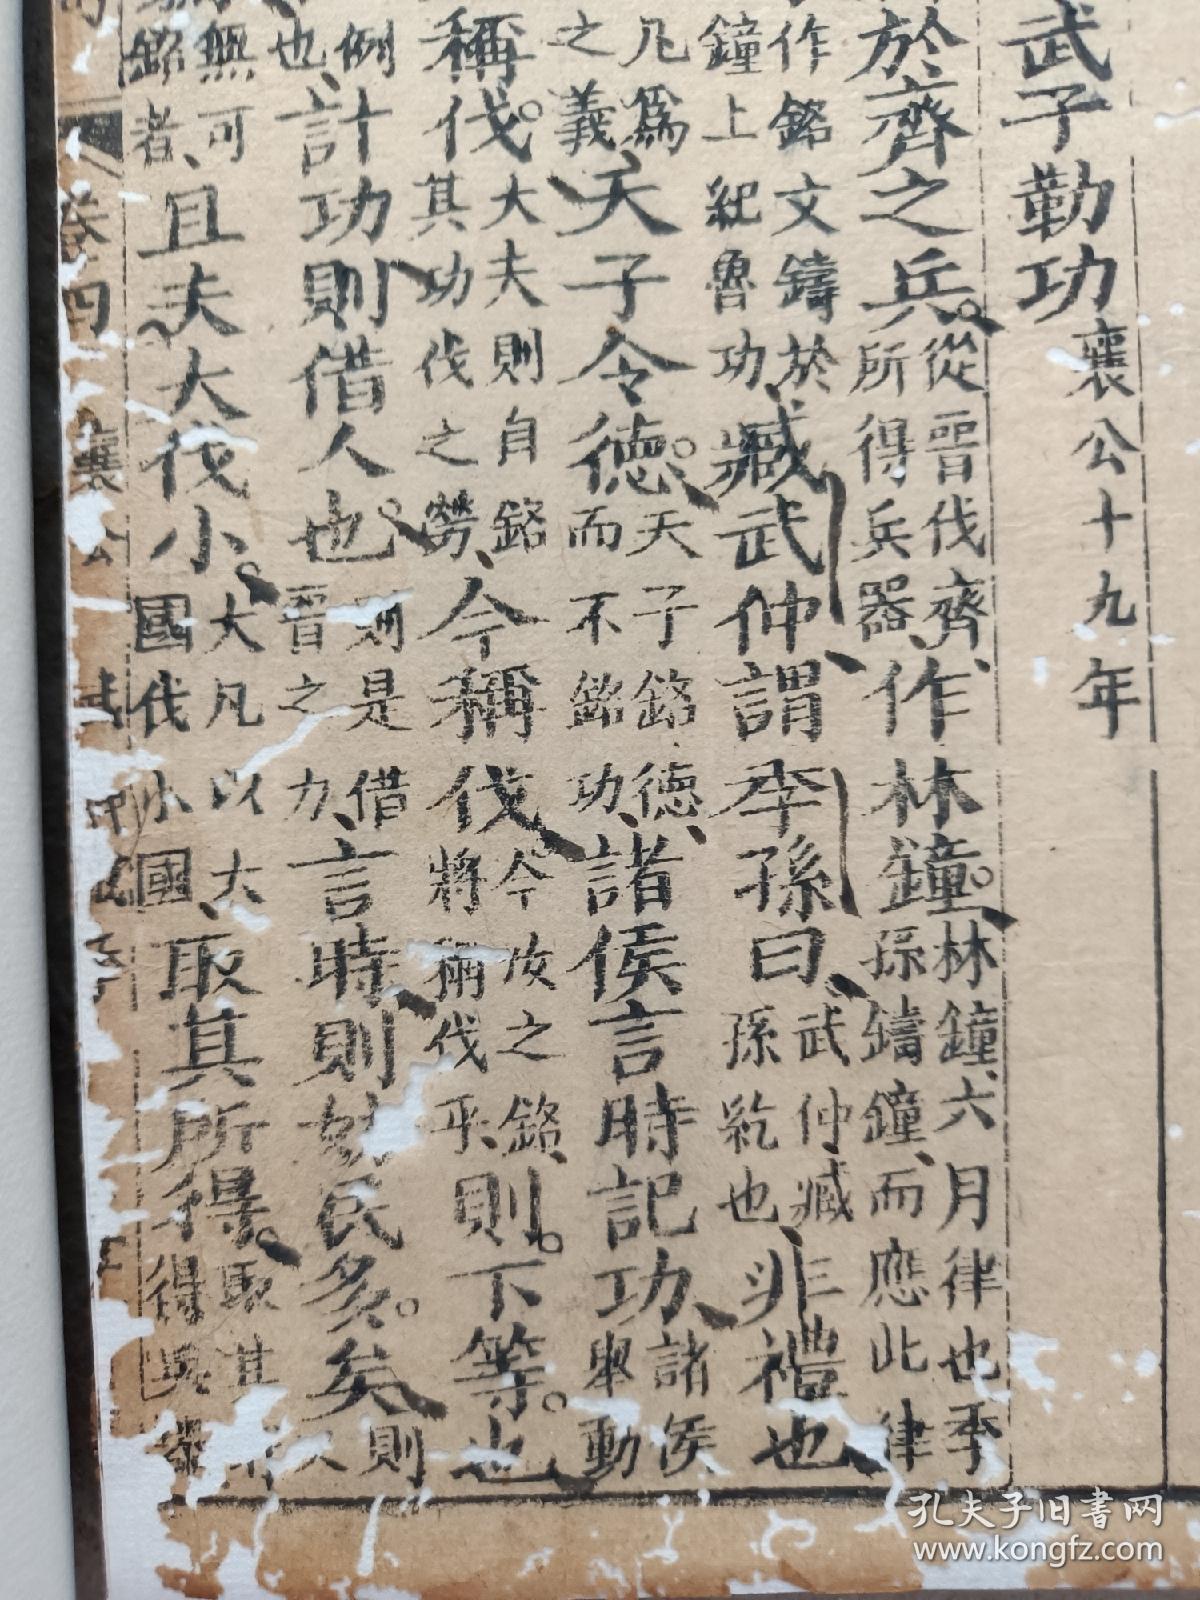 武子勒功襄公十九年
於齊之兵從晉伐齊所得兵器作林鐘林鐘六月律也季孫鑄鐘而應此律
作銘文鑄於鐘上紀魯功臧武仲謂季孫曰武仲臧孫紇也非禮也
凡爲之義天子令德天子銘德而不銘功諸侯言時記功諸侯舉動
稱伐大夫則自銘其功伐之勞今稱伐今汝之銘將稱伐乎則下等也
例也計功則借人也則是借晉之力言時則妨民多矣則
無可銘者且夫大伐小大凡以大國伐小國取其所得取其得
卷四 襄公
孔夫子旧书网
www.kongfz.com